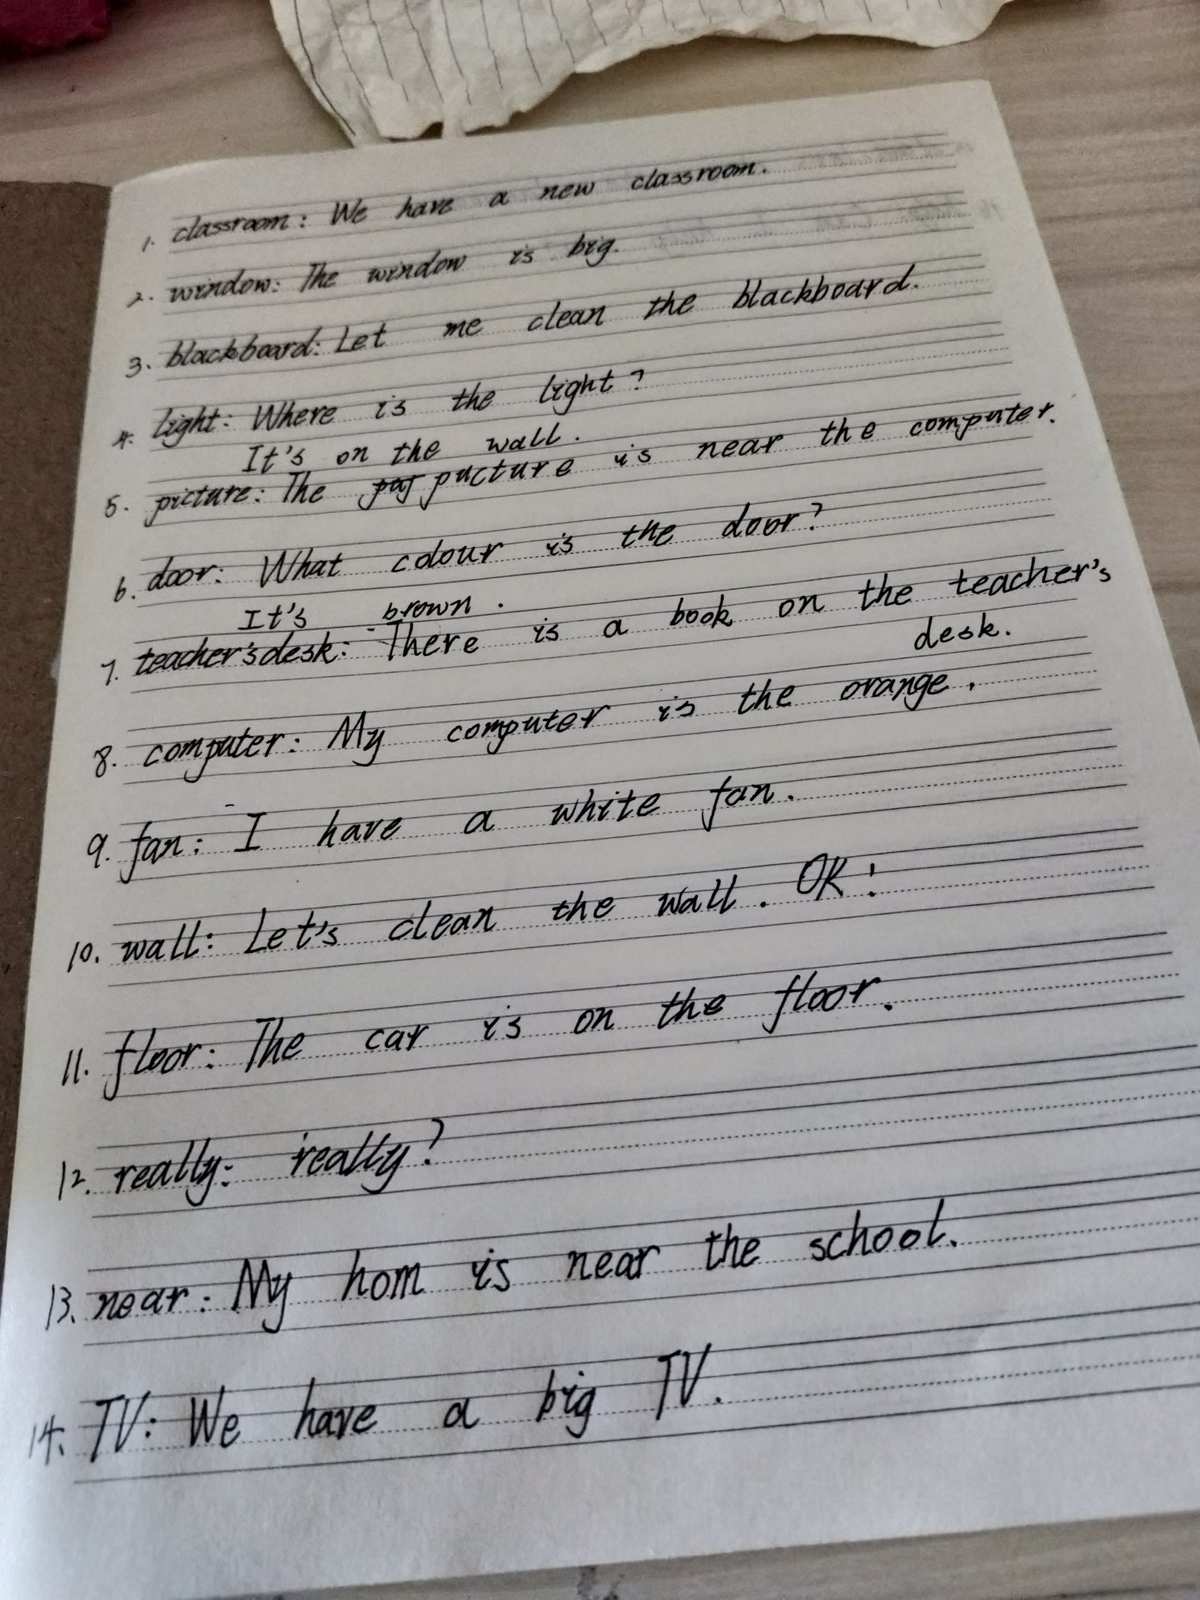 1. classroom: We have a new classroom.
2. window: The window is big.
3. blackboard: Let me clean the blackboard.
4. light: Where is the light?
It's on the wall.
5. picture: The pucture is near the computer.
6. door: What colour is the door?
It's brown.
7. teacher's desk: There is a book on the teacher's
desk.
8. computer: My computer is the orange.
9. fan: I have a white fan.
10. wall: Let's clean the wall. OK!
11. floor: The car is on the floor.
12. really: really?
13. near: My hom is near the school.
14. TV: We have a big TV.